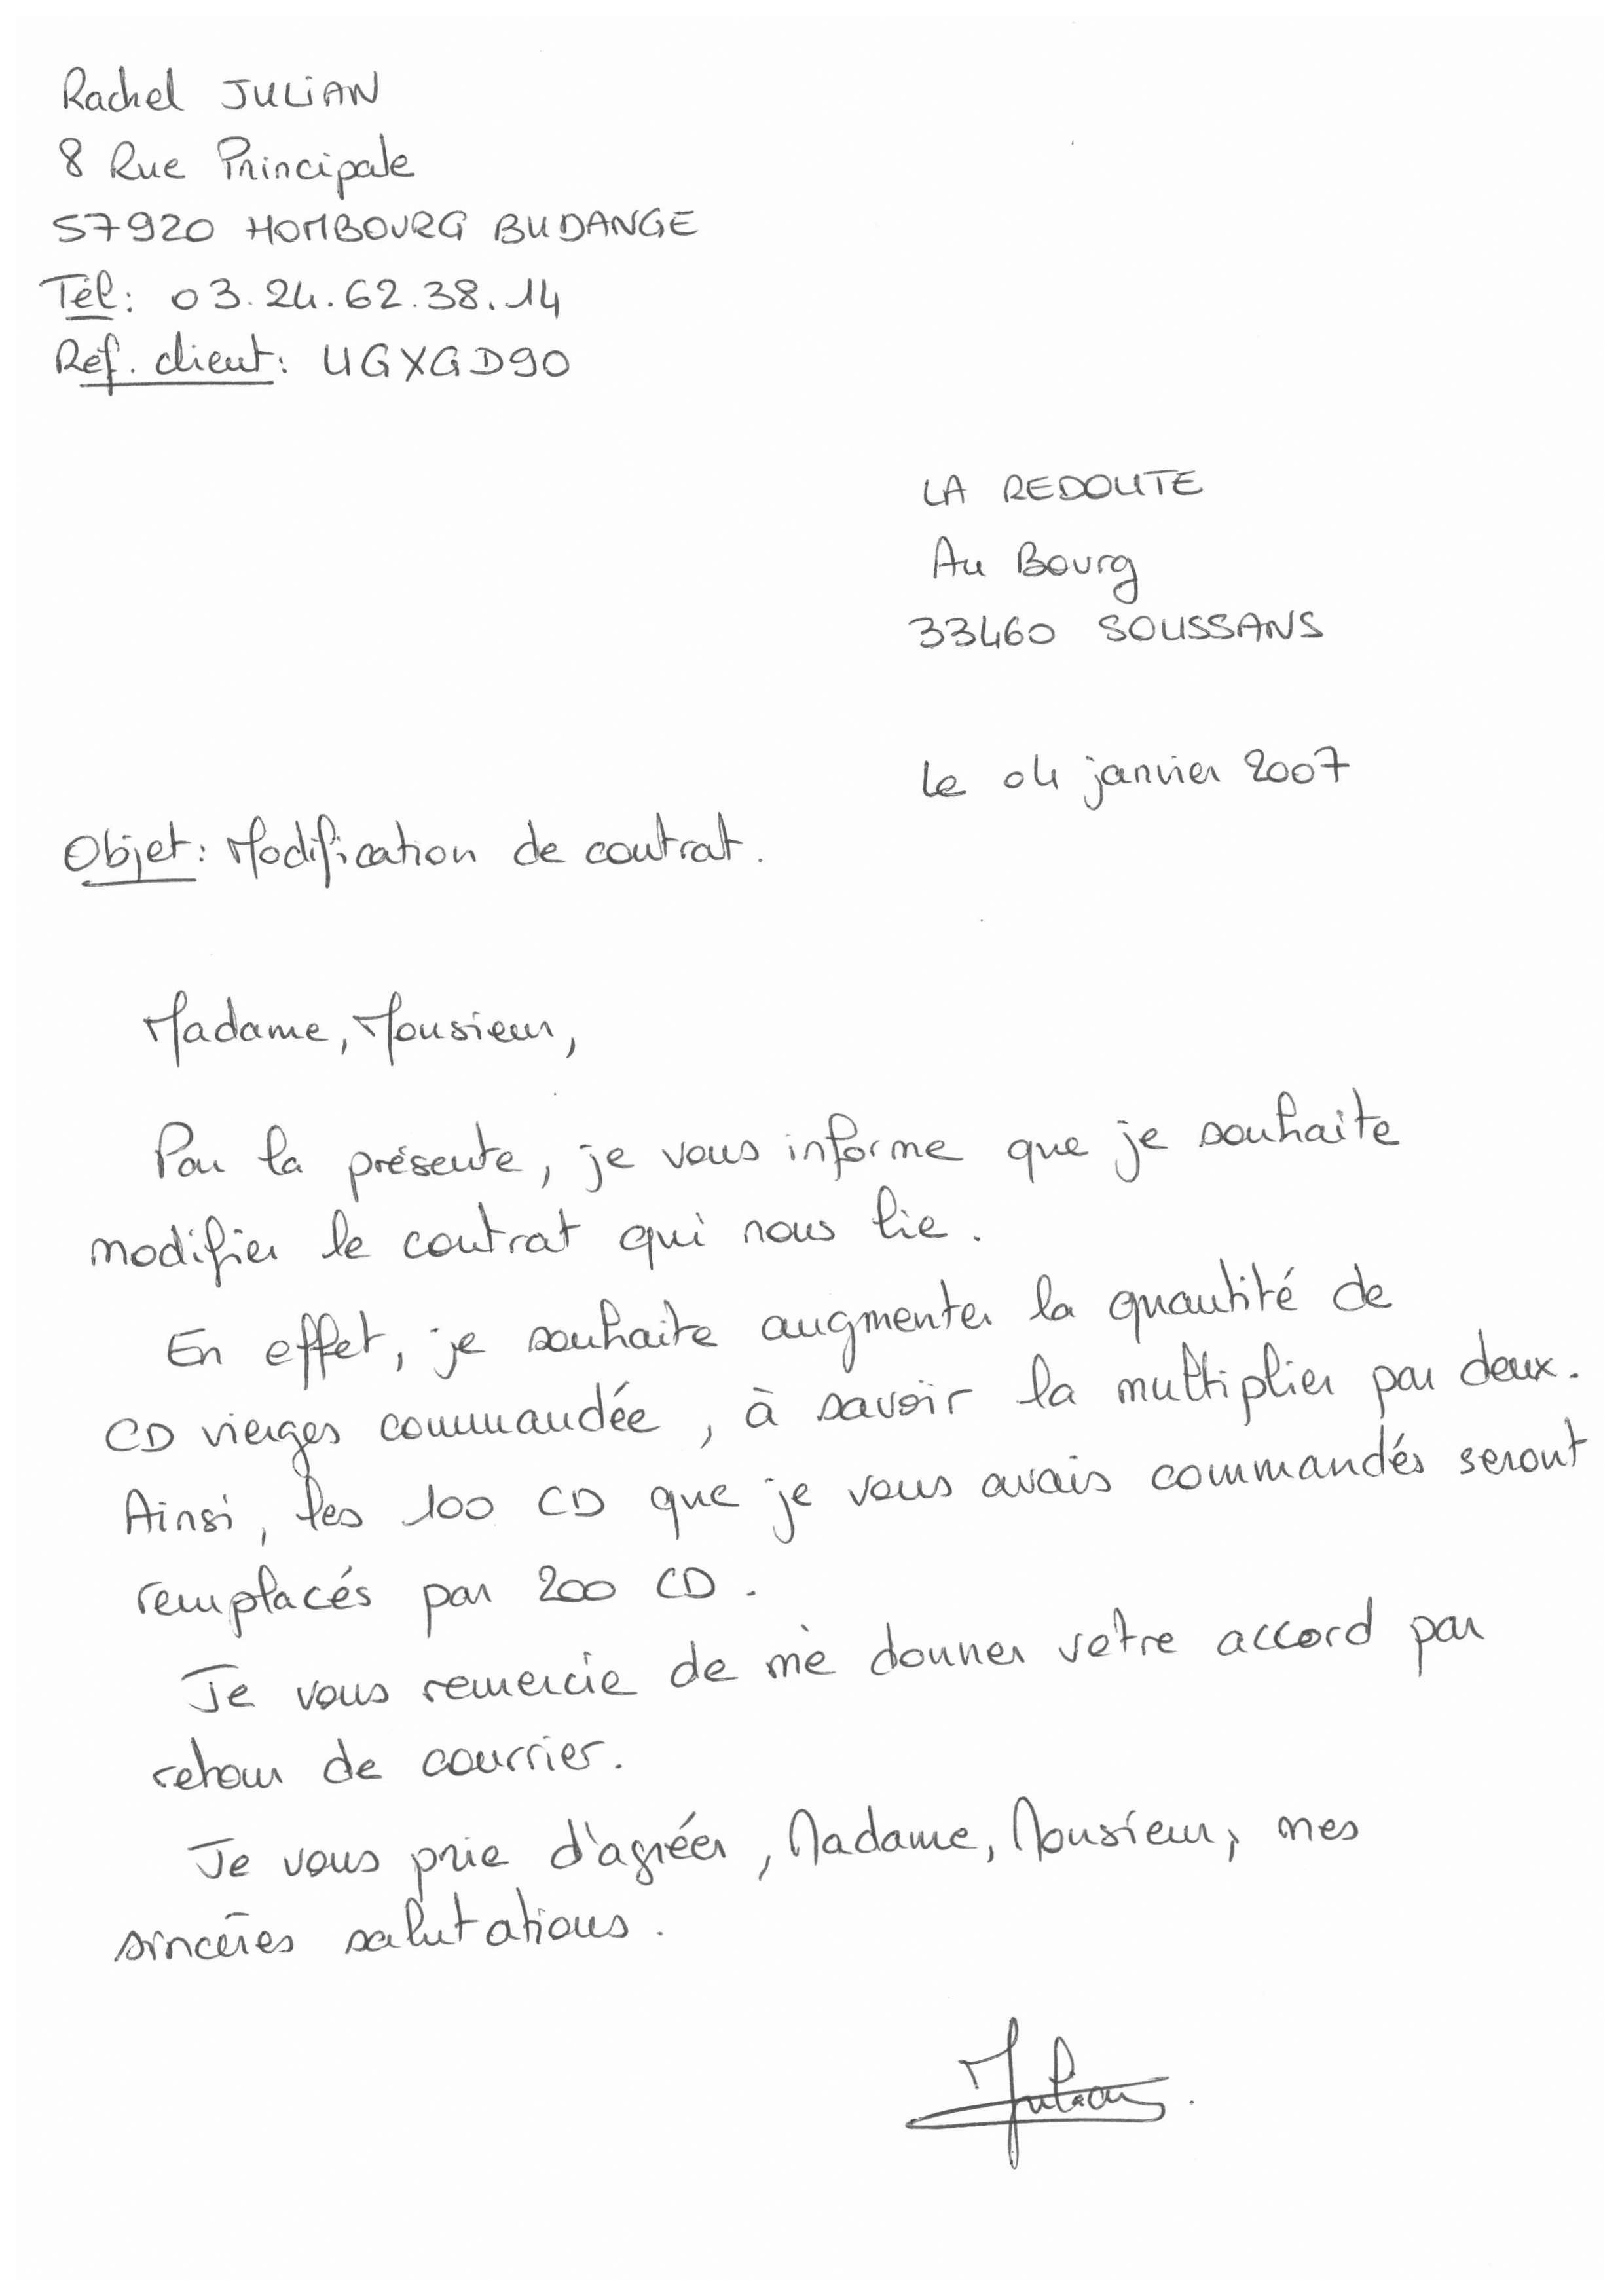 Rachel JULIAN
8 Rue Principale
57920 HOMBOURG BUDANGE
Tél: 03.24.62.38.14
Réf. client: UGXGD90
LA REDOUTE
Au Bourg
33460 SOUSSANS
le 04 janvier 2007
Objet: Modification de contrat.
Madame, Monsieur,
Par la présente, je vous informe que je souhaite
modifier le contrat qui nous lie.
En effet, je souhaite augmenter la quantité de
CD vierges commandée, à savoir la multiplier par deux.
Ainsi, les 100 CD que je vous avais commandés seront
remplacés par 200 CD.
Je vous remercie de me donner votre accord par
retour de courrier.
Je vous prie d'agréer, Madame, Monsieur, mes
sincères salutations.
Julian.